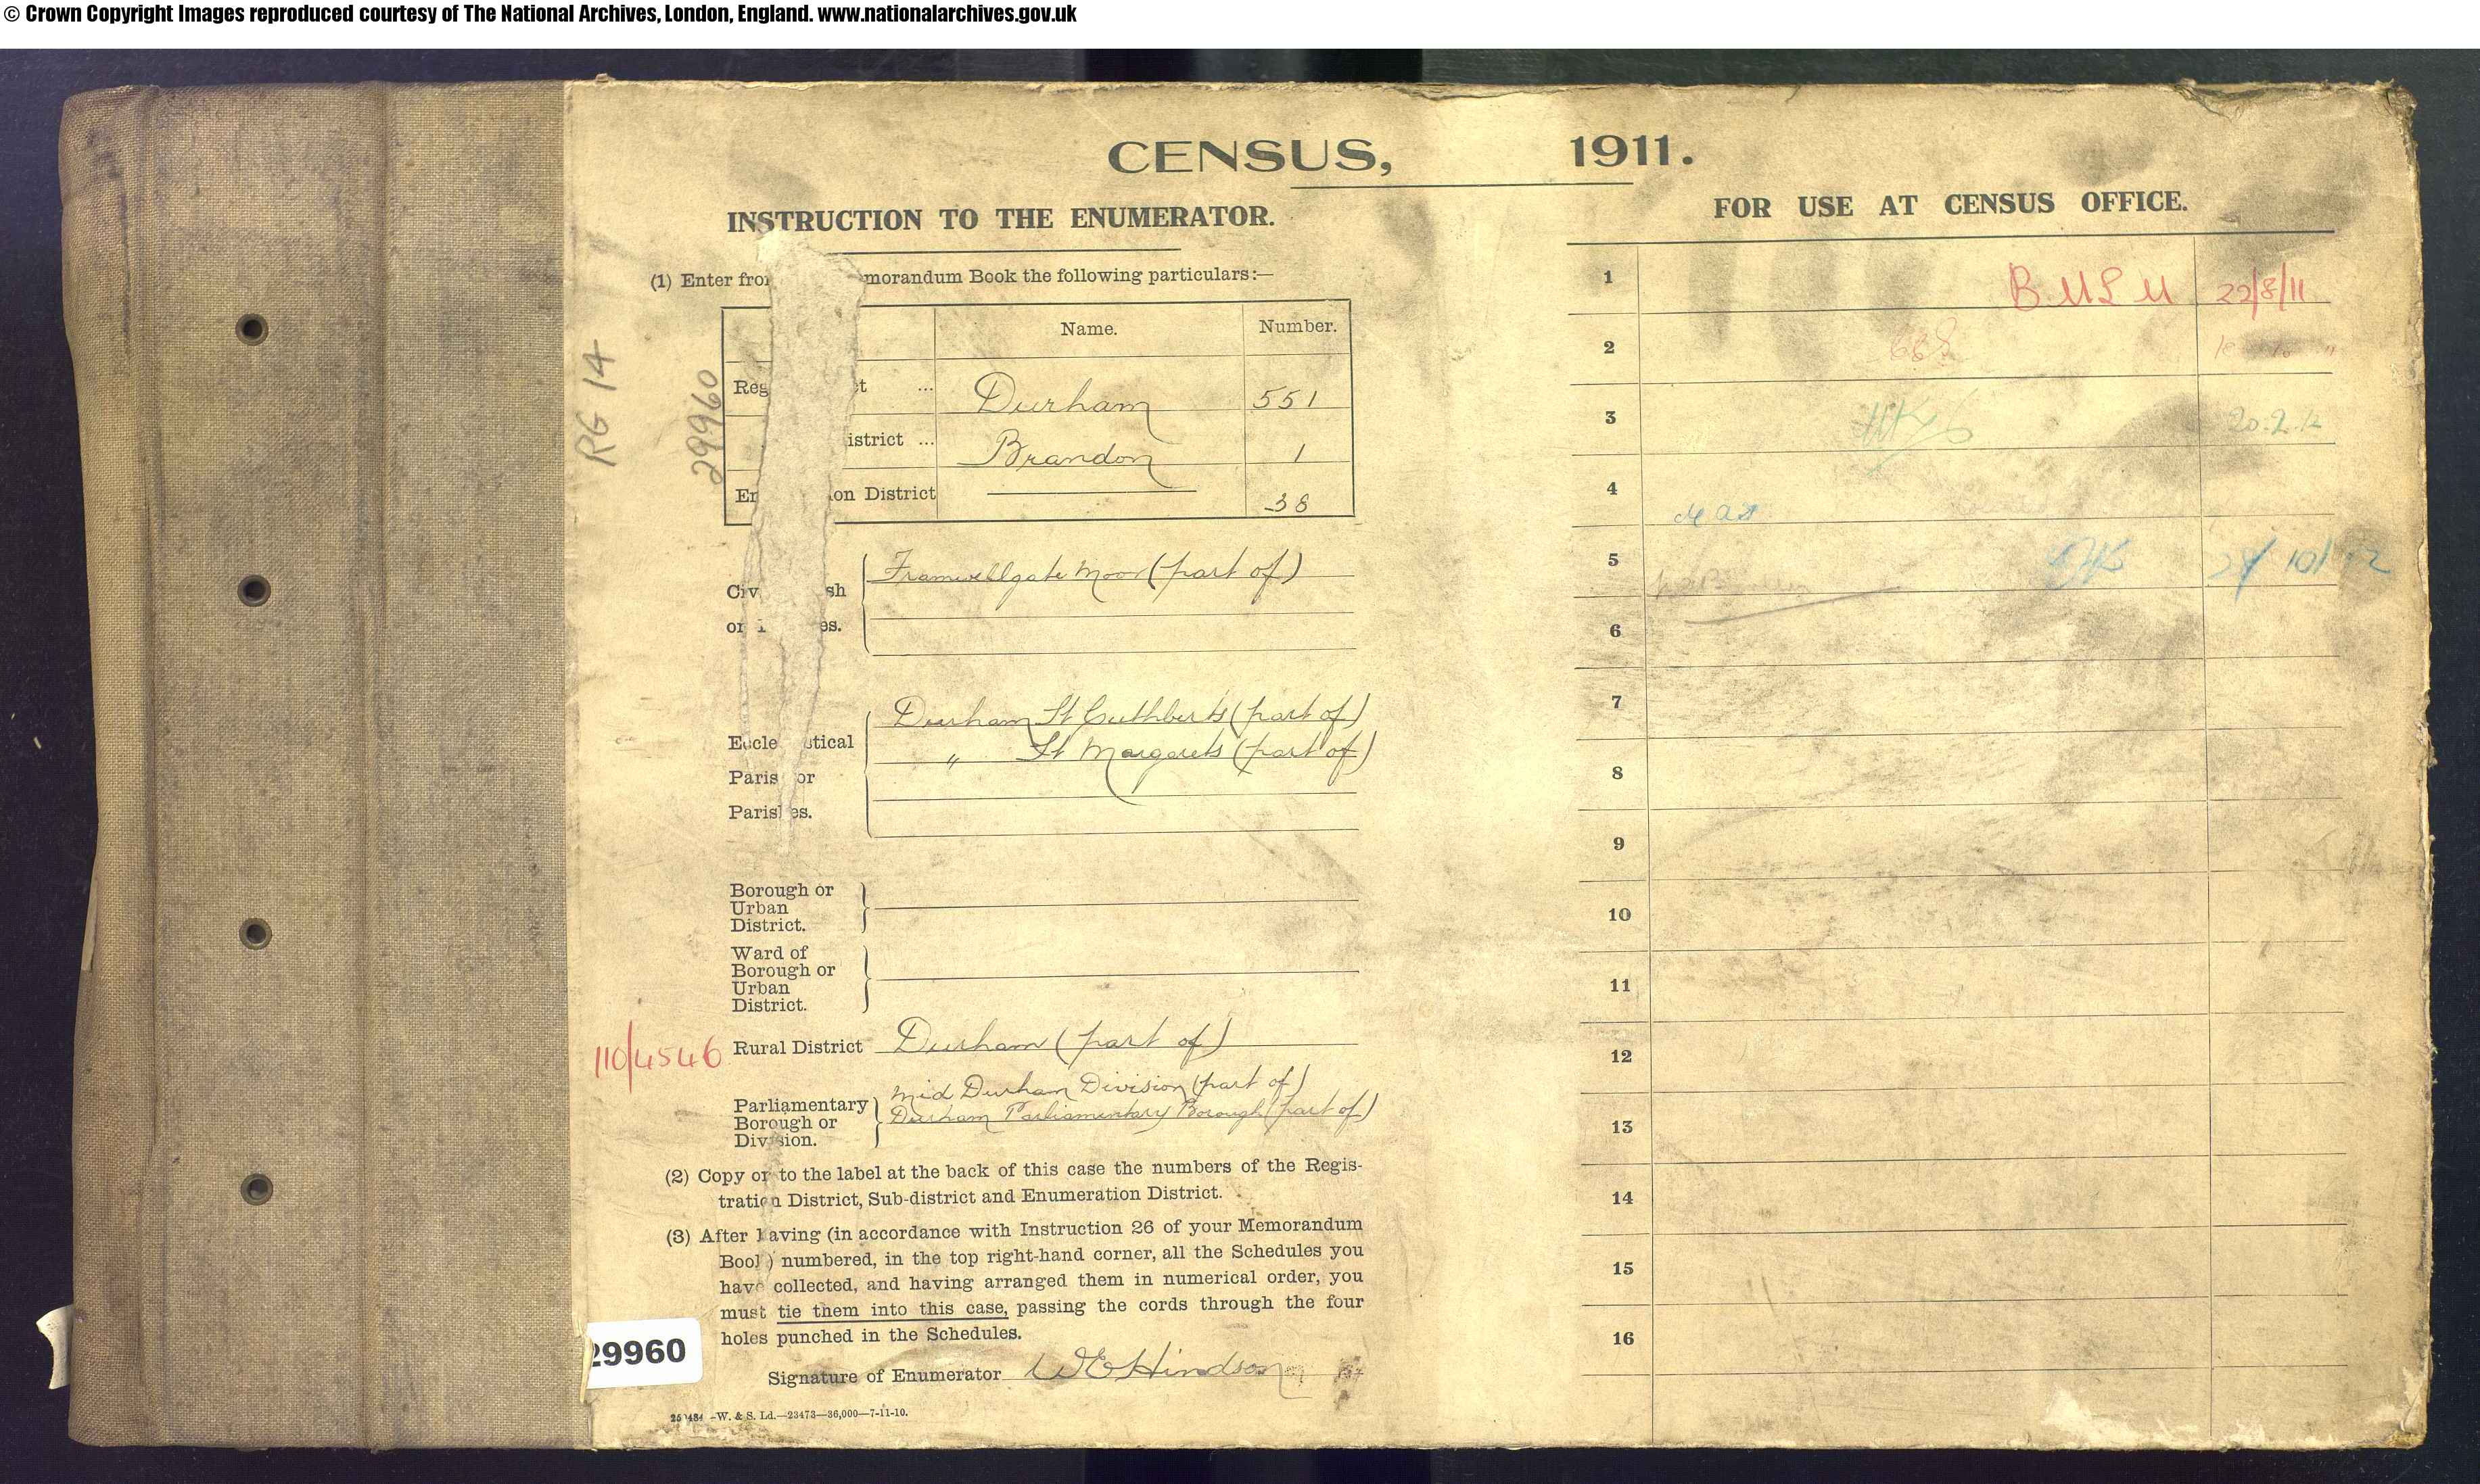 © Crown Copyright Images reproduced courtesy of The National Archives, London, England. www.nationalarchives.gov.uk
CENSUS, 1911.
INSTRUCTION TO THE ENUMERATOR.
(1) Enter from morandum Book the following particulars:—
Name. Number.
Reg t ... Durham 551
istrict ... Brandon 1
En on District 38
Civ sh
or es.
Framwellgate Moor (part of)
Eccle stical
Paris or
Paris es.
Durham St Cuthberts (part of)
" St Margarets (part of)
Borough or
Urban
District.
Ward of
Borough or
Urban
District.
Rural District Durham (part of)
Parliamentary
Borough or
Division.
Mid Durham Division (part of)
Durham Parliamentary Borough (part of)
(2) Copy on to the label at the back of this case the numbers of the Regis-
tration District, Sub-district and Enumeration District.
(3) After having (in accordance with Instruction 26 of your Memorandum
Book) numbered, in the top right-hand corner, all the Schedules you
have collected, and having arranged them in numerical order, you
must tie them into this case, passing the cords through the four
holes punched in the Schedules.
Signature of Enumerator W E Hindson
—W. & S. Ld.—23473—36,000—7-11-10.
RG 14
29960
110/4546
29960
FOR USE AT CENSUS OFFICE.
1 22/8/11
2
3 20.2.12
4
5
6
7
8
9
10
11
12
13
14
15
16